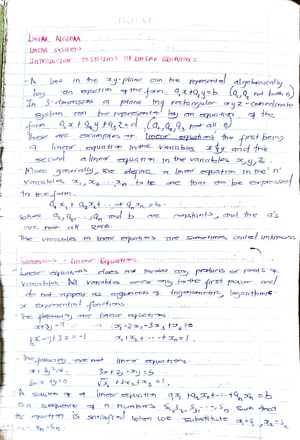 LINEAR ALGEBRA
LINEAR SYSTEMS
INTRODUCTION TO SYSTEMS OF LINEAR EQUATIONS
- A line in the xy-plane can be represented algebraically
by an equation of the form a₁x+a₂y=b (a₁,a₂ not both 0)
In 3-dimensions a plane in a rectangular xyz-coordinate
system can be represented by an equation of the
form a₁x+a₂y+a₃z=d, (a₁,a₂,a₃ not all 0)
These are examples of linear equations the first being
a linear equation in the variables x&y and the
second a linear equation in the variables x,y,z.
- More generally, we define a linear equation in the 'n'
variables x₁,x₂,...,xₙ to be one that can be expressed
in the form.
a₁x₁+a₂x₂+...+aₙxₙ=b.
where a₁,a₂,...,aₙ and b are constants, and the a's
are not all zero.
The variables in linear equations are sometimes called unknowns
: Linear Equations
- Linear equations does not involve any products or roots of
variables. All variables occur only to the first power and
do not appear as arguments of trigonometric, logarithmic
or exponential functions
- The following are linear equations.
x₁-2x₂-3x₃+x₄=0
x₁+x₂+...+xₙ=1.
- The following are not linear equations.
3x+2y-xy=5
√x₁+2x₂+x₃=1.
- A solution of a linear equation a₁x₁+a₂x₂+...+aₙxₙ=b
is a sequence of n numbers S₁,S₂,S₃,...,Sₙ such that
the equation is satisfied when we substitute x₁=S₁, x₂=S₂
xₙ=Sₙ.